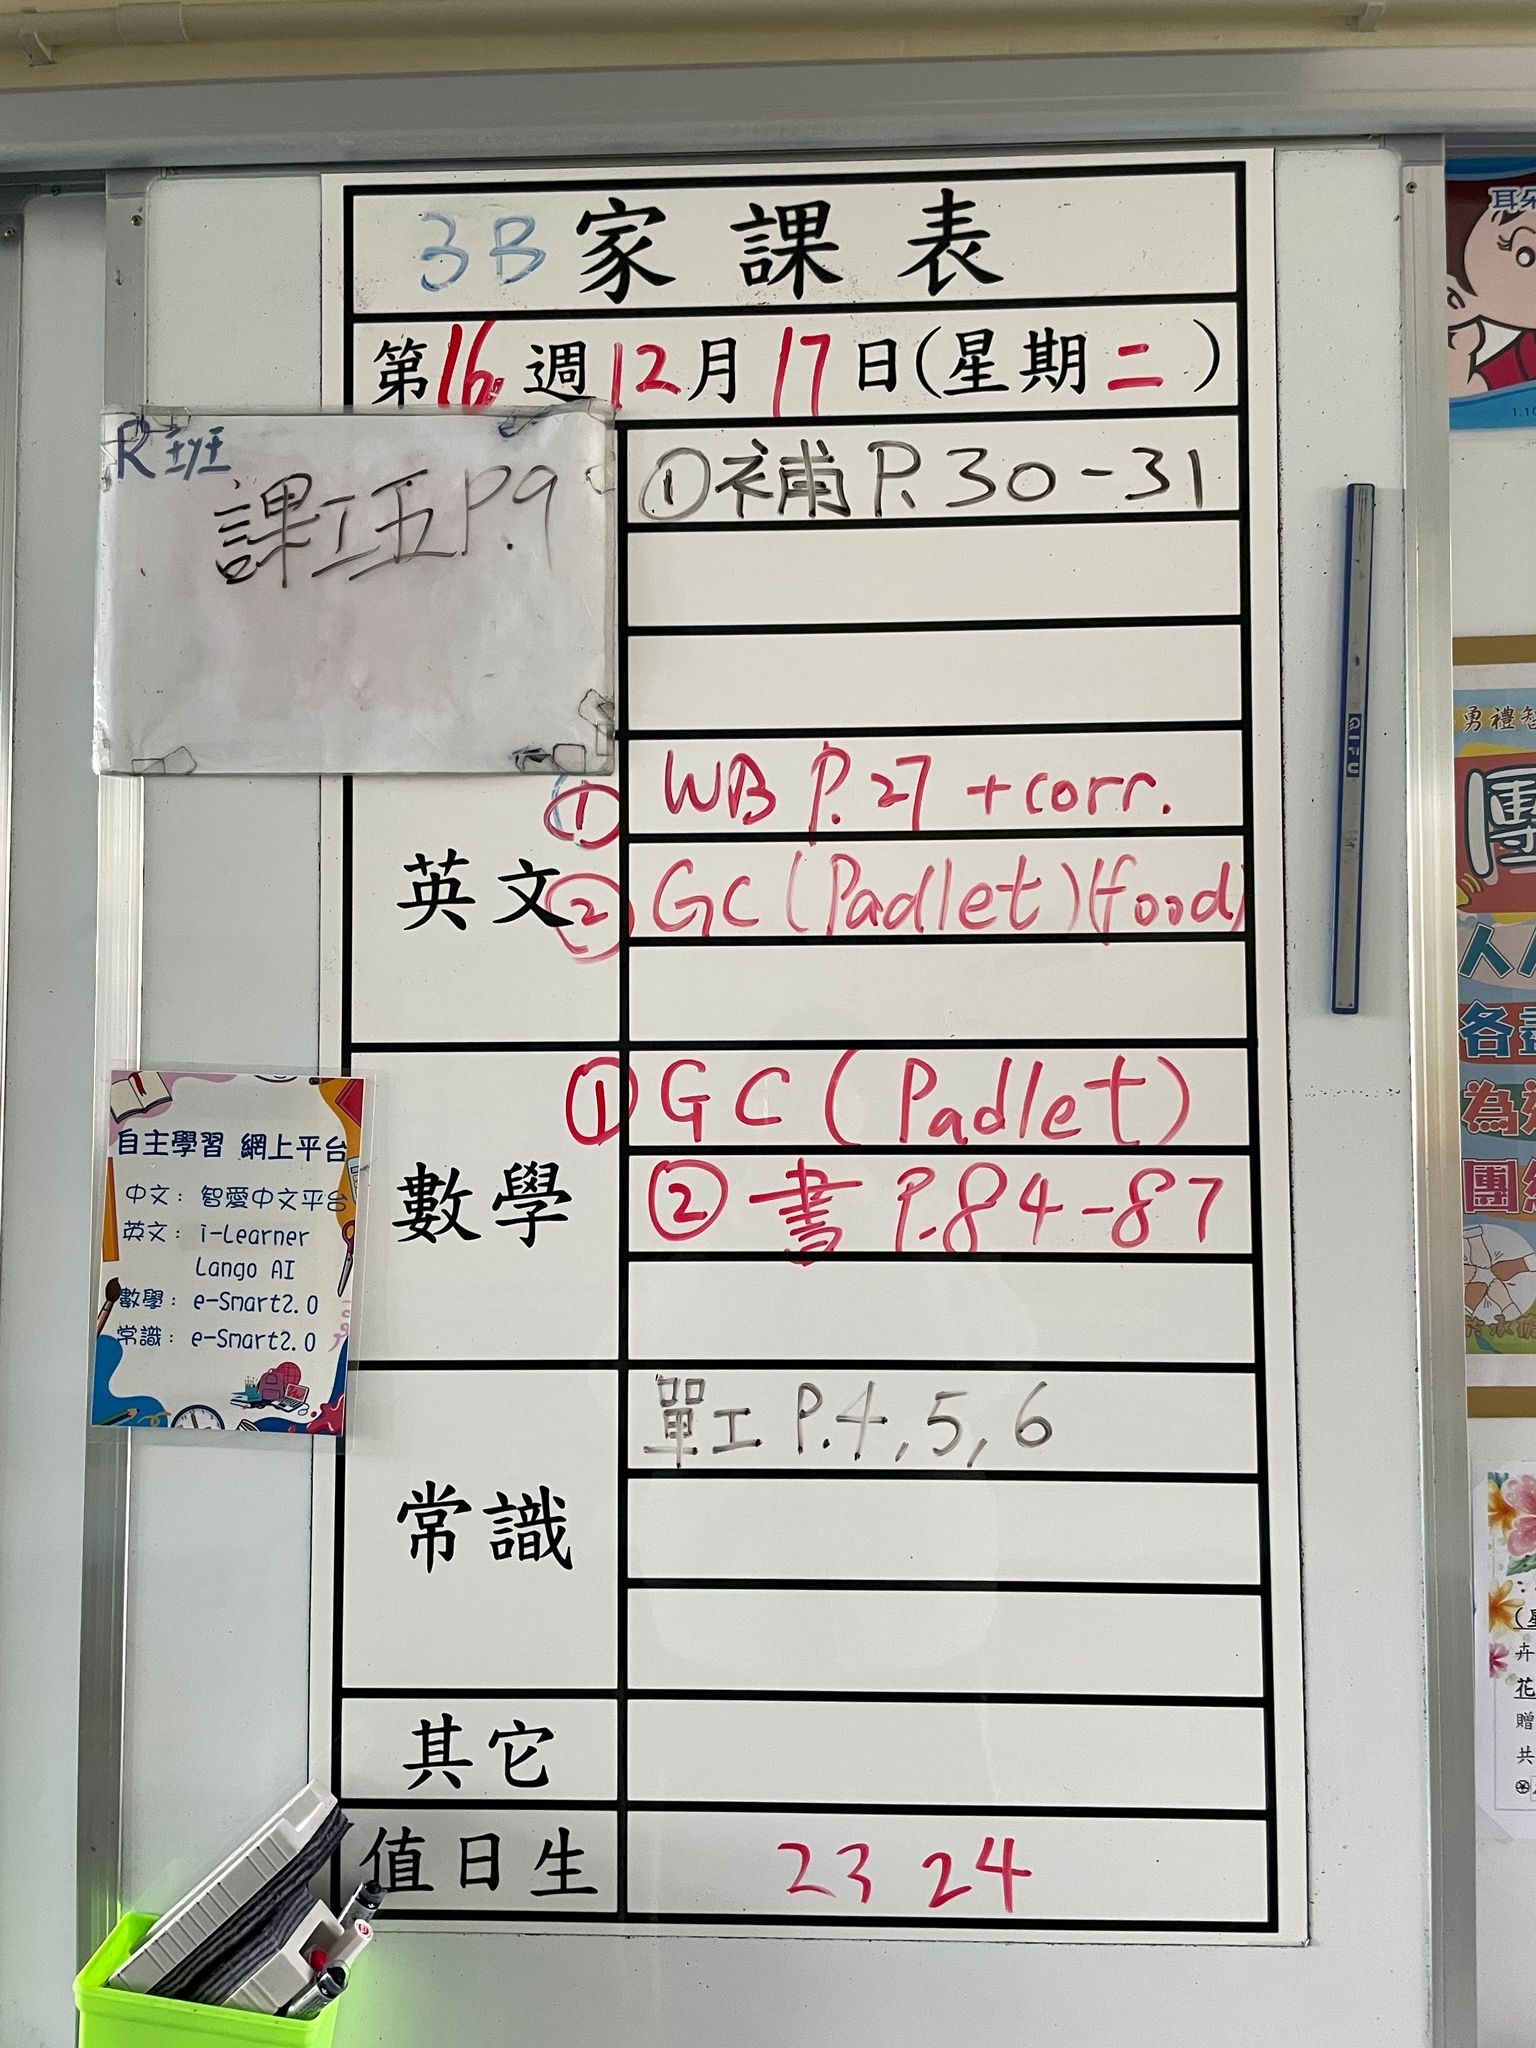 3B 家課表
第16週12月17日(星期二)
R班
課工五P.9
①補 P.30-31
英文
① WB P.27 +corr.
② GC (Padlet) (food)
數學
① GC (Padlet)
② 書 P.84-87
常識
單工 P.4, 5, 6
其它
值日生
23 24
自主學習 網上平台
中文：智愛中文平台
英文：i-Learner
Lango AI
數學：e-Smart2.0
常識：e-Smart2.0
QIFU
耳朵
1.10
勇禮智
團
各盡
為
團結
花
贈
共